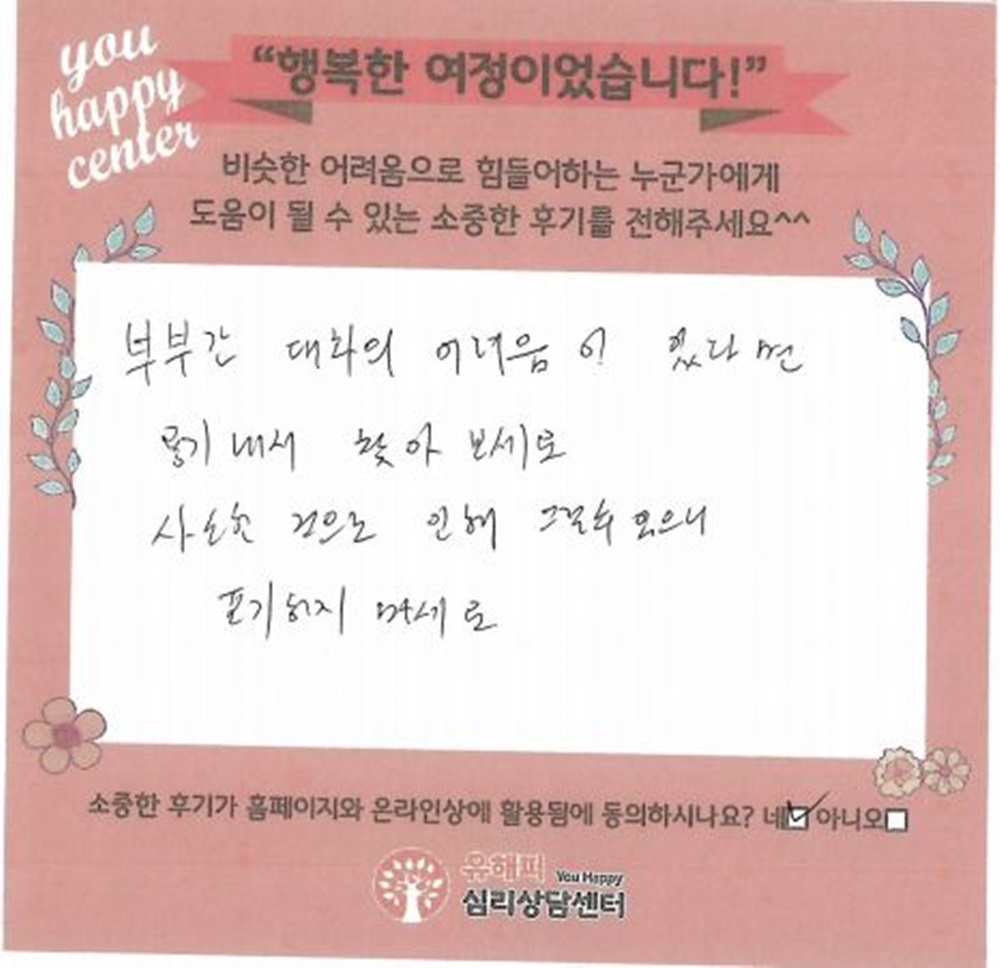 you
happy
center
“행복한 여정이었습니다!”
비슷한 어려움으로 힘들어하는 누군가에게
도움이 될 수 있는 소중한 후기를 전해주세요^^
부부간 대화의 어려움이 있다면
용기내서 찾아 보세요
사소한 것으로 인해 그럴수 있으니
포기하지 마세요
소중한 후기가 홈페이지와 온라인상에 활용됨에 동의하시나요? 네☑ 아니오☐
유해피 You Happy
심리상담센터